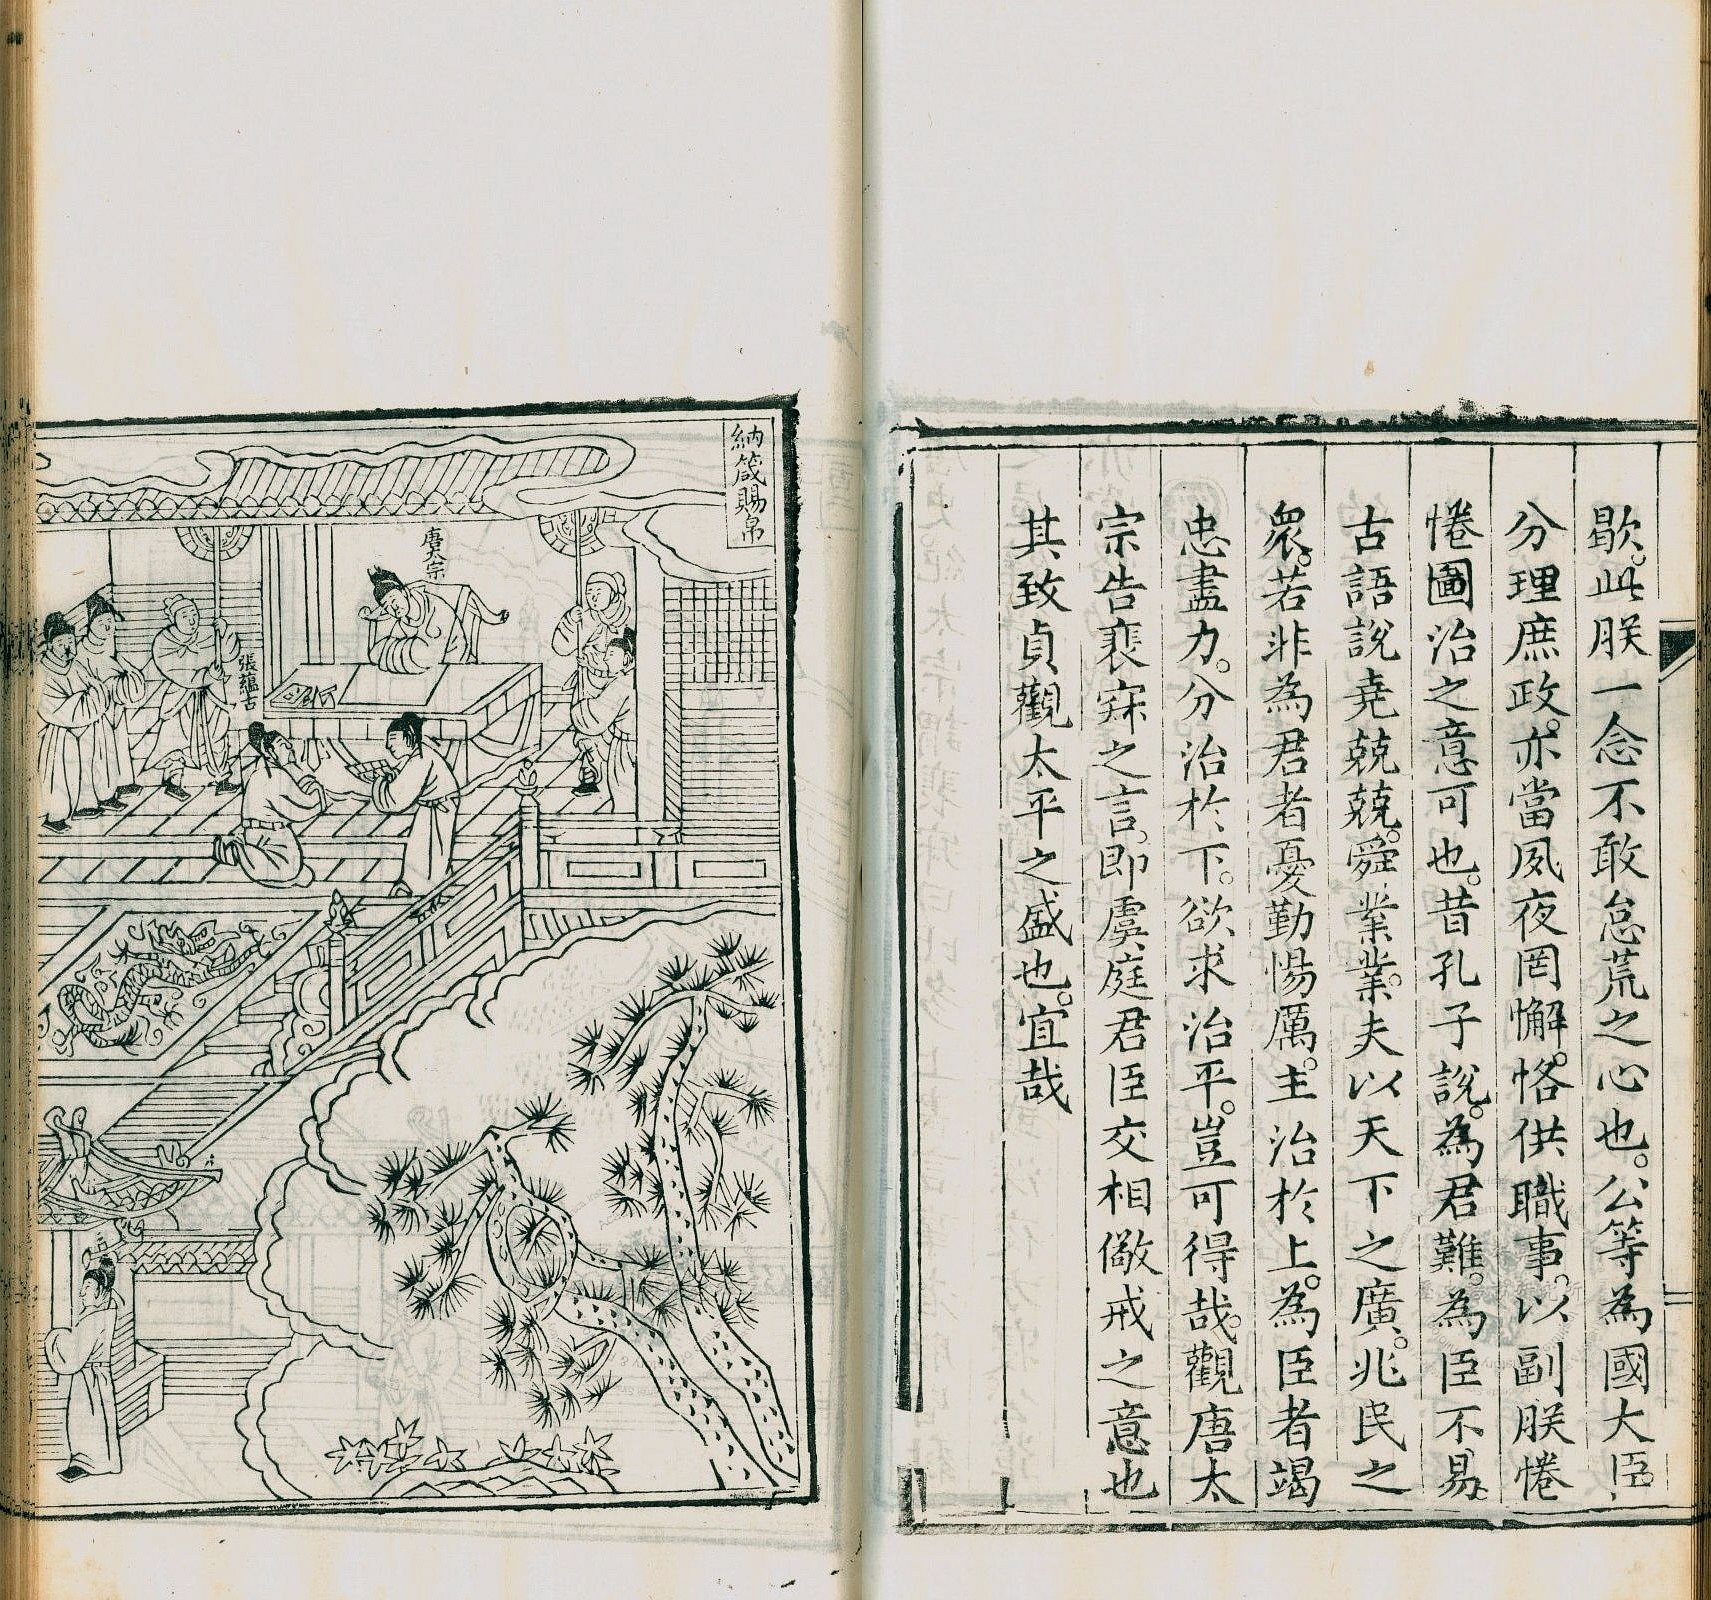 歇。此朕一念不敢怠荒之心也。公等為國大臣。
分理庶政。亦當夙夜罔懈。恪供職事。以副朕惓
惓圖治之意可也。昔孔子說。為君難。為臣不易。
古語說堯兢兢。舜業業。夫以天下之廣。兆民之
衆。若非為君者憂勤惕厲。主治於上。為臣者竭
忠盡力。分治於下。欲求治平。豈可得哉。觀唐太
宗告裴寂之言。即虞庭君臣交相儆戒之意也
其致貞觀太平之盛也。宜哉
納箴賜帛
唐太宗
張蘊古